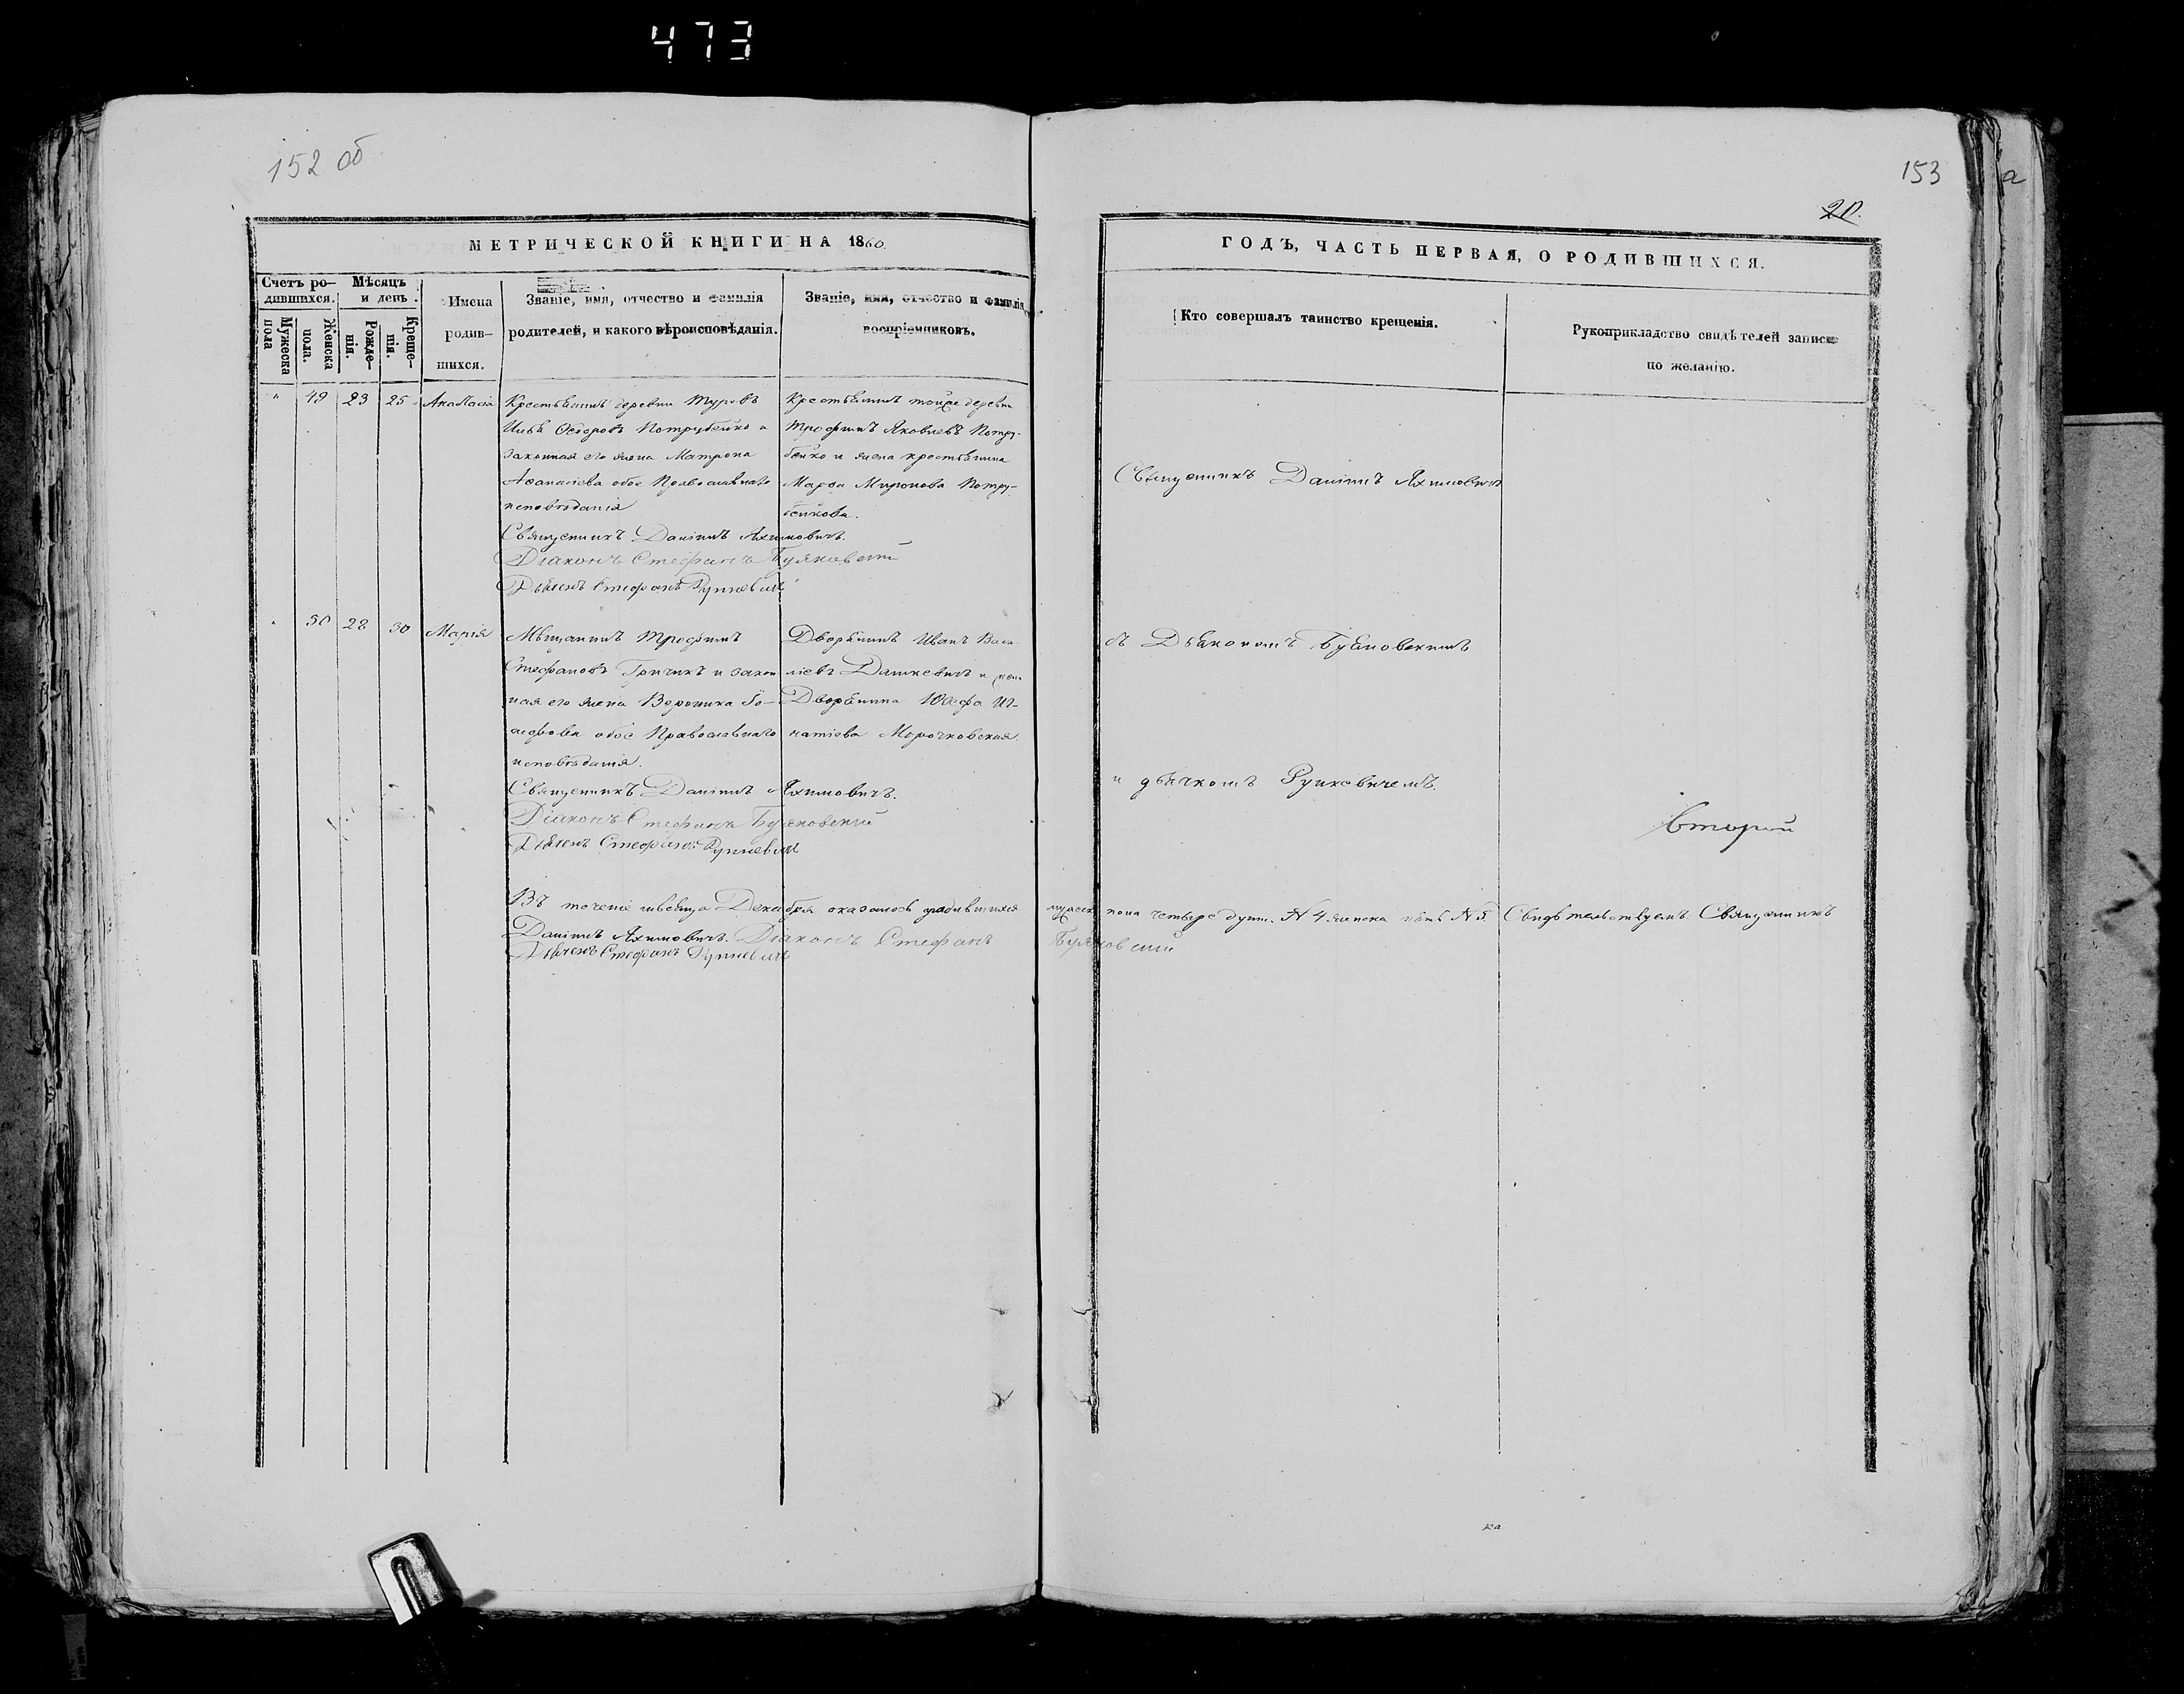 473
152 об
153
20.
МЕТРИЧЕСКОЙ КНИГИ НА 1860.
ГОДЪ, ЧАСТЬ ПЕРВАЯ, О РОДИВШИХСЯ.
Счетъ ро-
дившихся.
Мѣсяцъ
и день.
Мужеска
пола
Женска
пола.
Рожде-
нія.
Креще-
нія.
Имена
родив-
шихся.
Званіе, имя, отчество и фамилія
родителей, и какого вѣроисповѣданія.
Званіе, имя, отчество и фамилія
воспріемниковъ.
Кто совершалъ таинство крещенія.
Рукоприкладство свидѣтелей записи
по желанію.
" 49 23 25
Крестьянинъ деревни Туровъ
Ѳедоровъ Потрубейко и
законная его жена Матрона
Аѳанасіева обое Православнаго
исповѣданія
Священникъ Даніилъ Яхимовичъ.
Діаконъ Стефанъ Буяковскій
Дьячекъ Стефанъ Рункевичъ
Крестьянинъ тойже деревни
Трофимъ Яковлевъ Потру-
бейко и жена крестьянина
Марѳа Миронова Потру-
бейкова.
Священникъ Даніилъ Яхимовичъ
" 50 28 30 Марія
Мѣщанинъ Трофимъ
Стефановъ Гричикъ и закон
ная его жена Вероника
обое Православнаго
исповѣданія.
Священникъ Даніилъ Яхимовичъ.
Діаконъ Стефанъ Буяковскій
Дьячекъ Стефанъ Рункевичъ
Дворянинъ Иванъ Васи
ліевъ Дашкевичъ и жена
Дворянина Юзефа Иг-
натіева Морочковская.
съ Діакономъ Буяковскимъ
и дьячкомъ Рункевичемъ.
Вторый
Въ теченіе мѣсяца Декабря оказалось родившихся мужеск. пола четыре души. N 4 женска пять N 5. Свидѣтельствуемъ: Священникъ
Даніилъ Яхимовичъ. Діаконъ Стефанъ Буяковскій
Дьячекъ Стефанъ Рункевичъ
ка